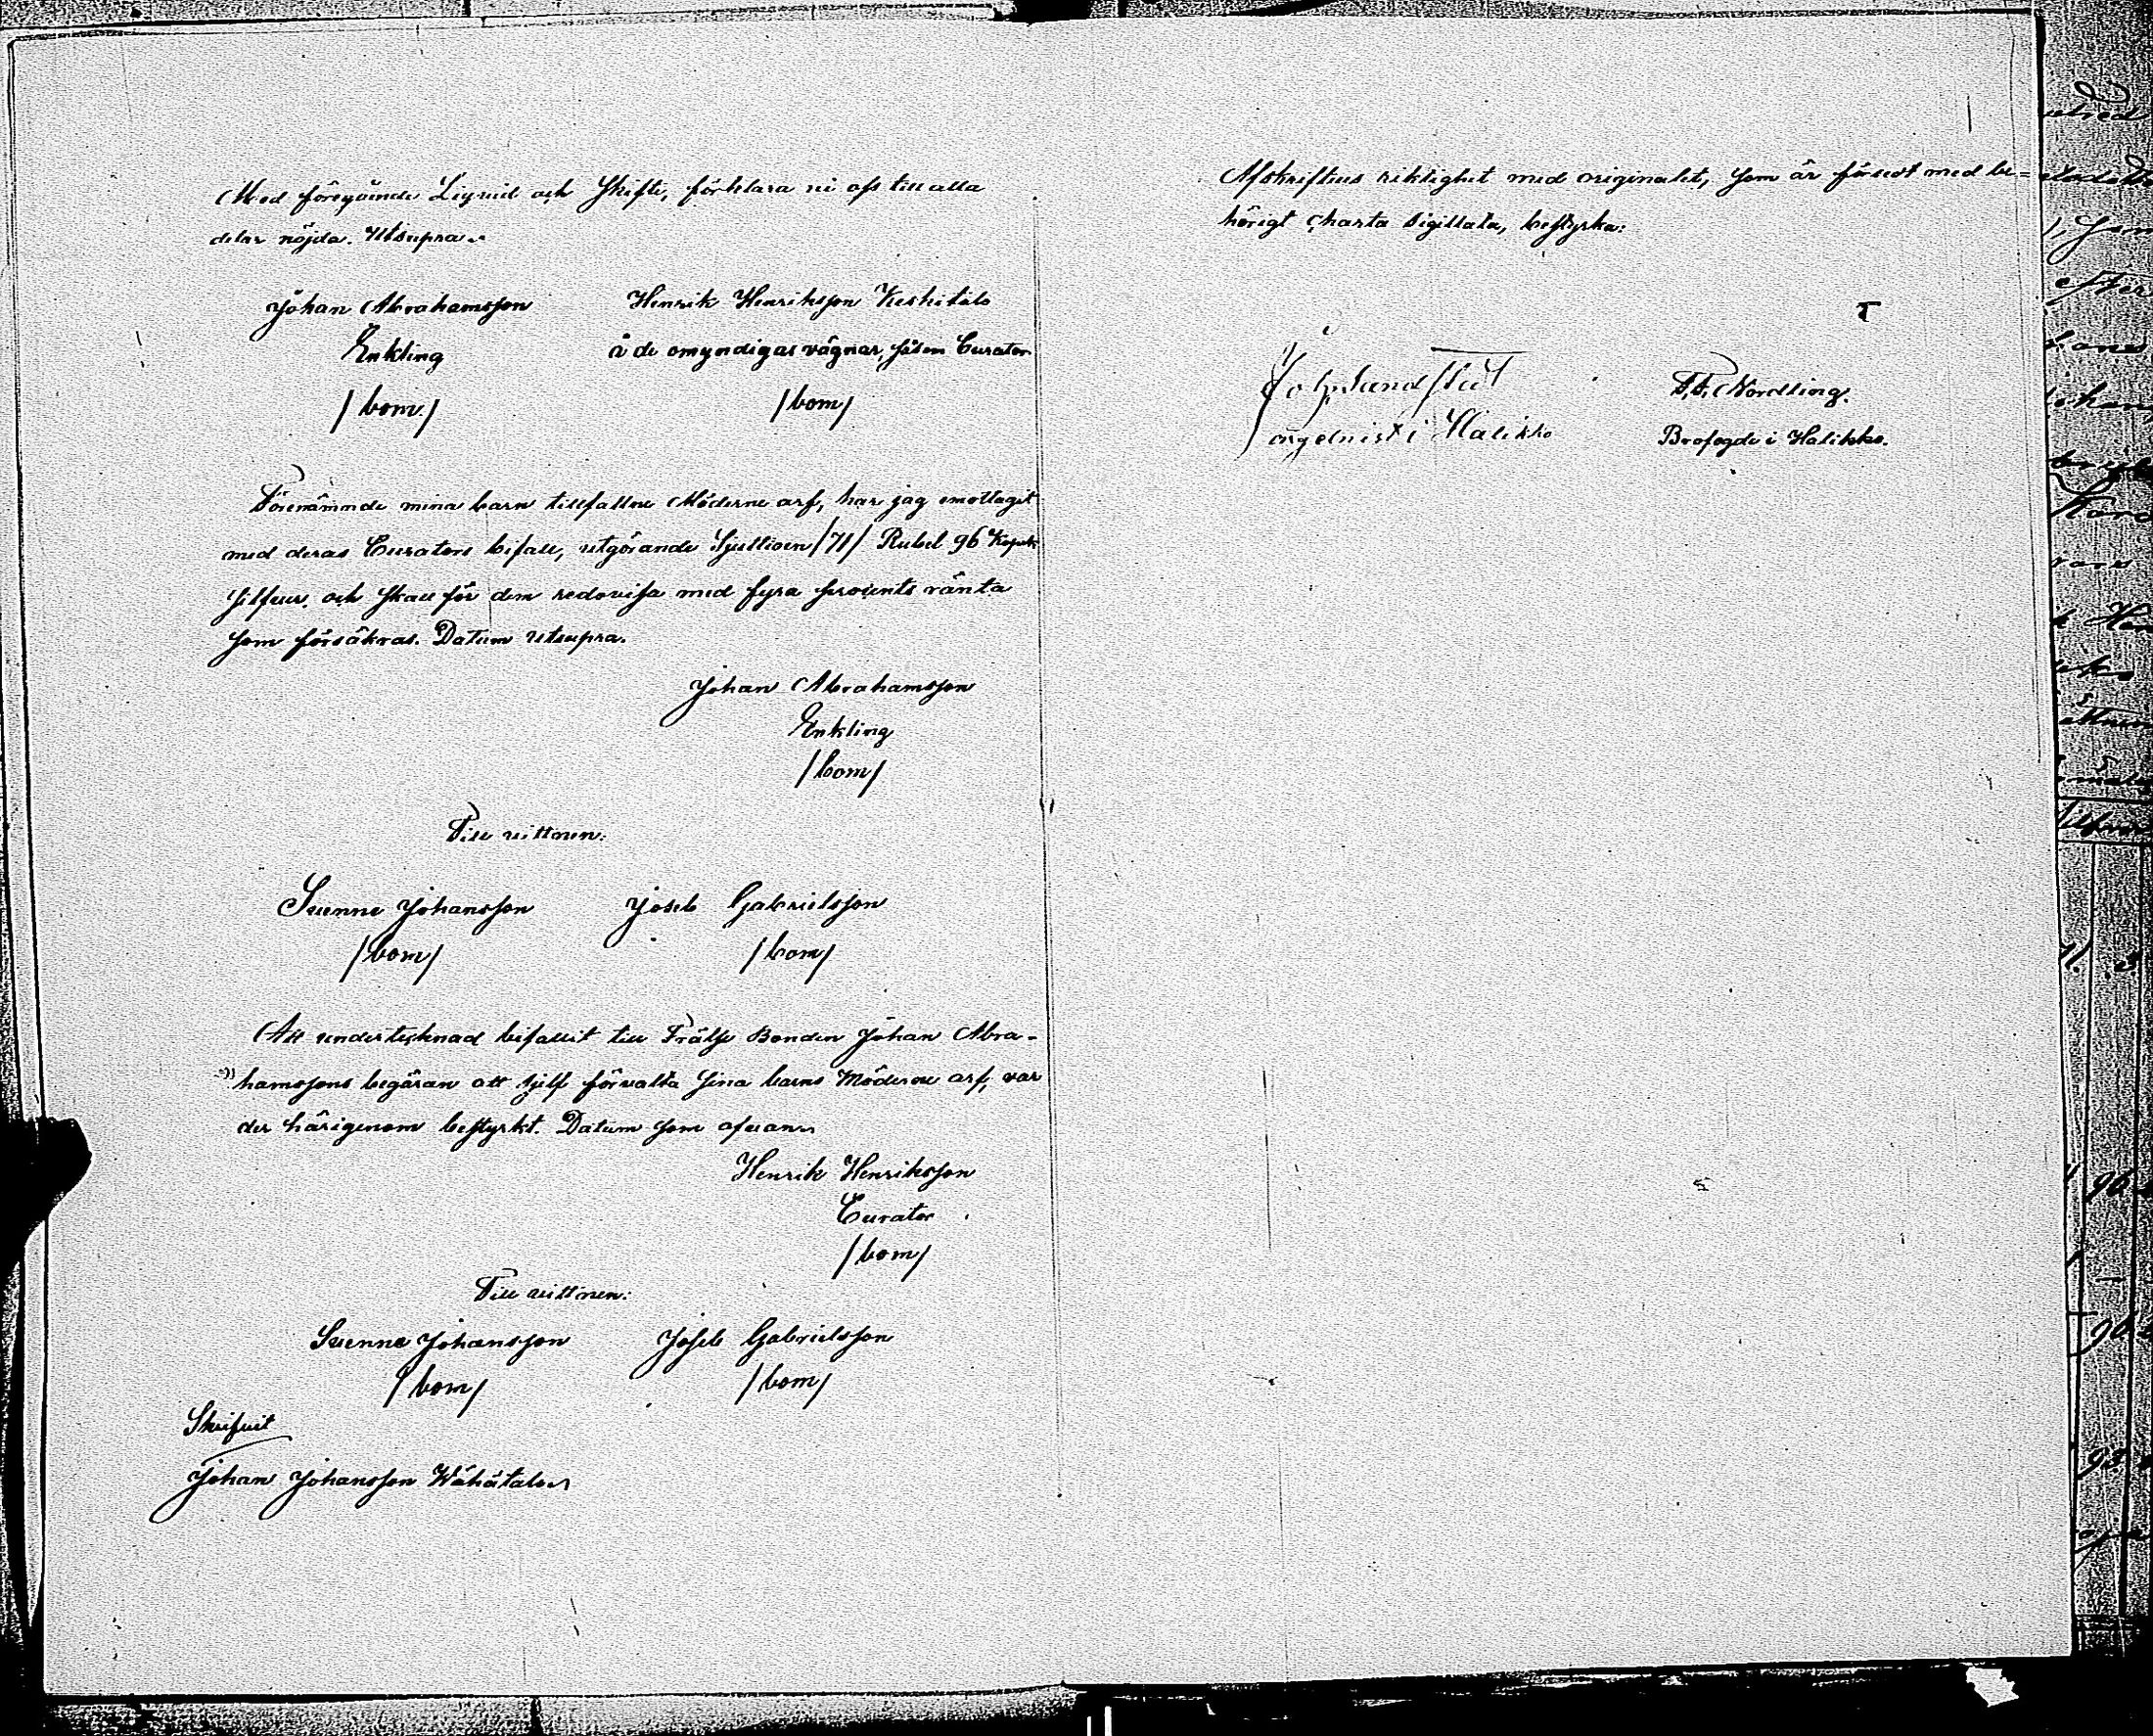 Med föregående Liqvid och Skifte, förklara vi oss till alla
delar nöjda. Utsupra.
Johan Abrahamsson
Enkling
/bom/
Henrik Henriksson Keskitalo
å de omyndigas vägnar, såsom Curator
/bom/
Förenämnde mina barn tillfallne Möderne arf, har jag emottagit
med deras Curators bifall, utgörande Sjuttioen /71/ Rubel 96 Kopek
Silfver, och skall för dem redovisa med fyra procents ränta
som försäkras. Datum utsupra.
Johan Abrahamsson
Enkling
/bom/
Till vittnen:
Svenne Johansson
/bom/
Joseb Gabrielsson
/bom/
Att undertecknad bifallit till Frälse Bonden Johan Abra-
hamssons begäran att sjelf förvalta sina barns Möderne arf, var
der härigenom bestyrkt. Datum som ofvan.
Henrik Henriksson
Curator
/bom/
Till vittnen:
Svenne Johansson
/bom/
Joseb Gabrielsson
/bom/
Skrifvit
Johan Johansson Wähätalo
Afskriftens riktighet med originalet, som är försedt med be=
hörigt Charta Sigillata, bestyrka:
Joh. Sandstedt
orgelnist i Halikko
F. F. Nordling.
Brofogde i Halikko.